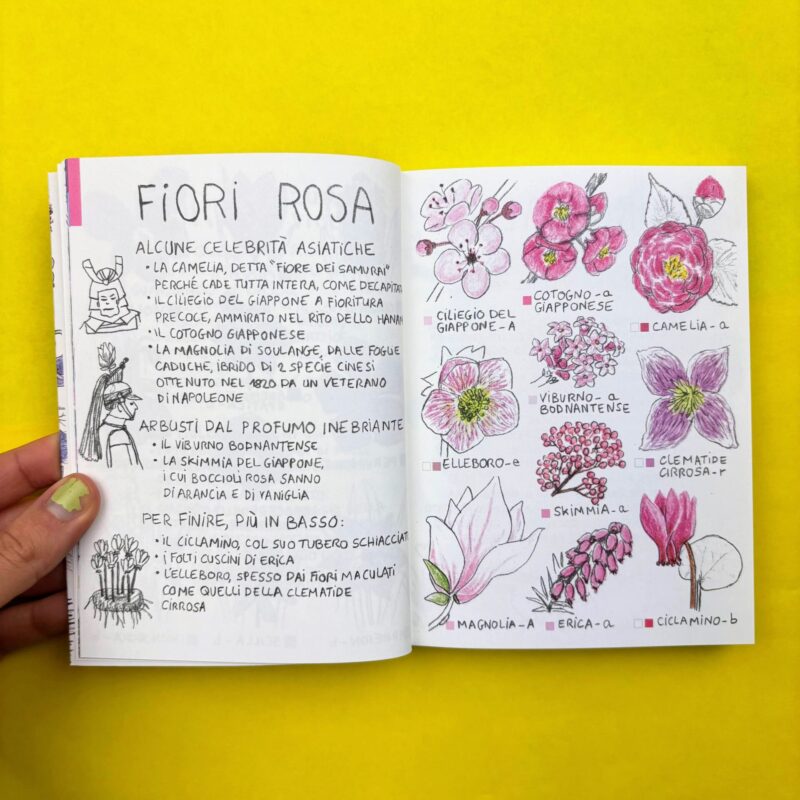 FiORi ROSA
ALCUNE CELEBRITÀ ASIATICHE
• LA CAMELIA, DETTA "FIORE DEI SAMURAI"
PERCHÉ CADE TUTTA INTERA, COME DECAPITAT
• IL CILIEGIO DEL GIAPPONE A FIORITURA
PRECOCE, AMMIRATO NEL RITO DELLO HANAM
• IL COTOGNO GIAPPONESE
• LA MAGNOLIA DI SOULANGE, DALLE FOGLIE
CADUCHE, IBRIDO DI 2 SPECIE CINESI
OTTENUTO NEL 1820 DA UN VETERANO
DI NAPOLEONE
ARBUSTI DAL PROFUMO INEBRIANTE
• IL VIBURNO BODNANTENSE
• LA SKIMMIA DEL GIAPPONE,
I CUI BOCCIOLI ROSA SANNO
DI ARANCIA E DI VANIGLIA
PER FINIRE, PIÙ IN BASSO:
• IL CICLAMINO, COL SUO TUBERO SCHIACCIATO
• I FOLTI CUSCINI DI ERICA
• L'ELLEBORO, SPESSO DAI FIORI MACULATI
COME QUELLI DELLA CLEMATIDE
CIRROSA
CILIEGIO DEL
GIAPPONE-A
COTOGNO-a
GIAPPONESE
CAMELIA-a
ELLEBORO-e
VIBURNO-a
BODNANTENSE
SKIMMIA-a
CLEMATIDE
CIRROSA-r
MAGNOLIA-A
ERICA-a
CICLAMINO-b